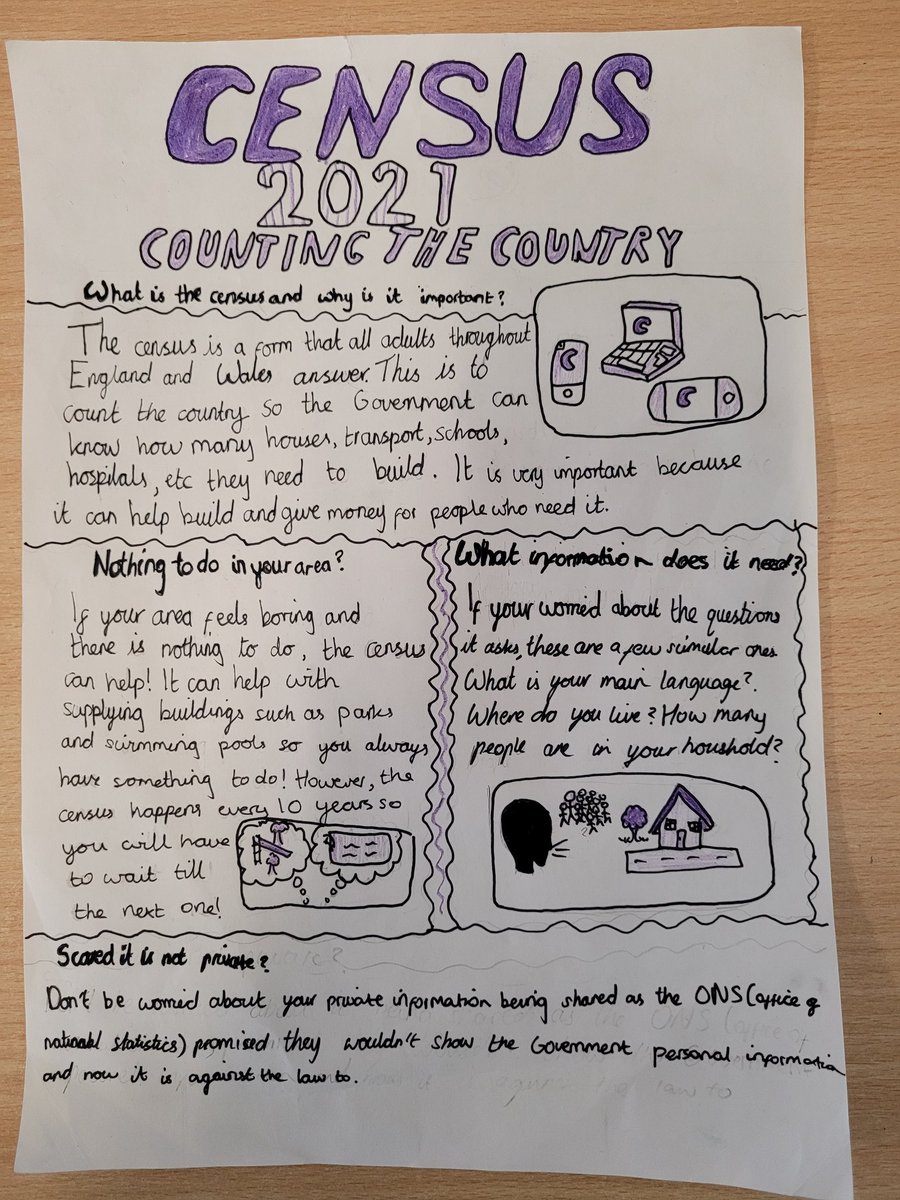 CENSUS
2021
COUNTING THE COUNTRY
What is the census and why is it important?
The census is a form that all adults throughout
England and Wales answer. This is to
count the country so the Government can
know how many houses, transport, schools,
hospitals, etc they need to build. It is very important because
it can help build and give money for people who need it.
C
C
C
Nothing to do in your area?
If your area feels boring and
there is nothing to do, the census
can help! It can help with
supplying buildings such as parks
and swimming pools so you always
have something to do! However, the
census happens every 10 years so
you will have
to wait till
the next one!
What information does it need?
If your worried about the questions
it asks, these are a few simular ones
What is your main language?
Where do you live? How many
people are in your houshold?
Scared it is not private?
Don't be worried about your private information being shared as the ONS (office of
statistics) promised they wouldn't show the Government personal information
and now it is against the law to.